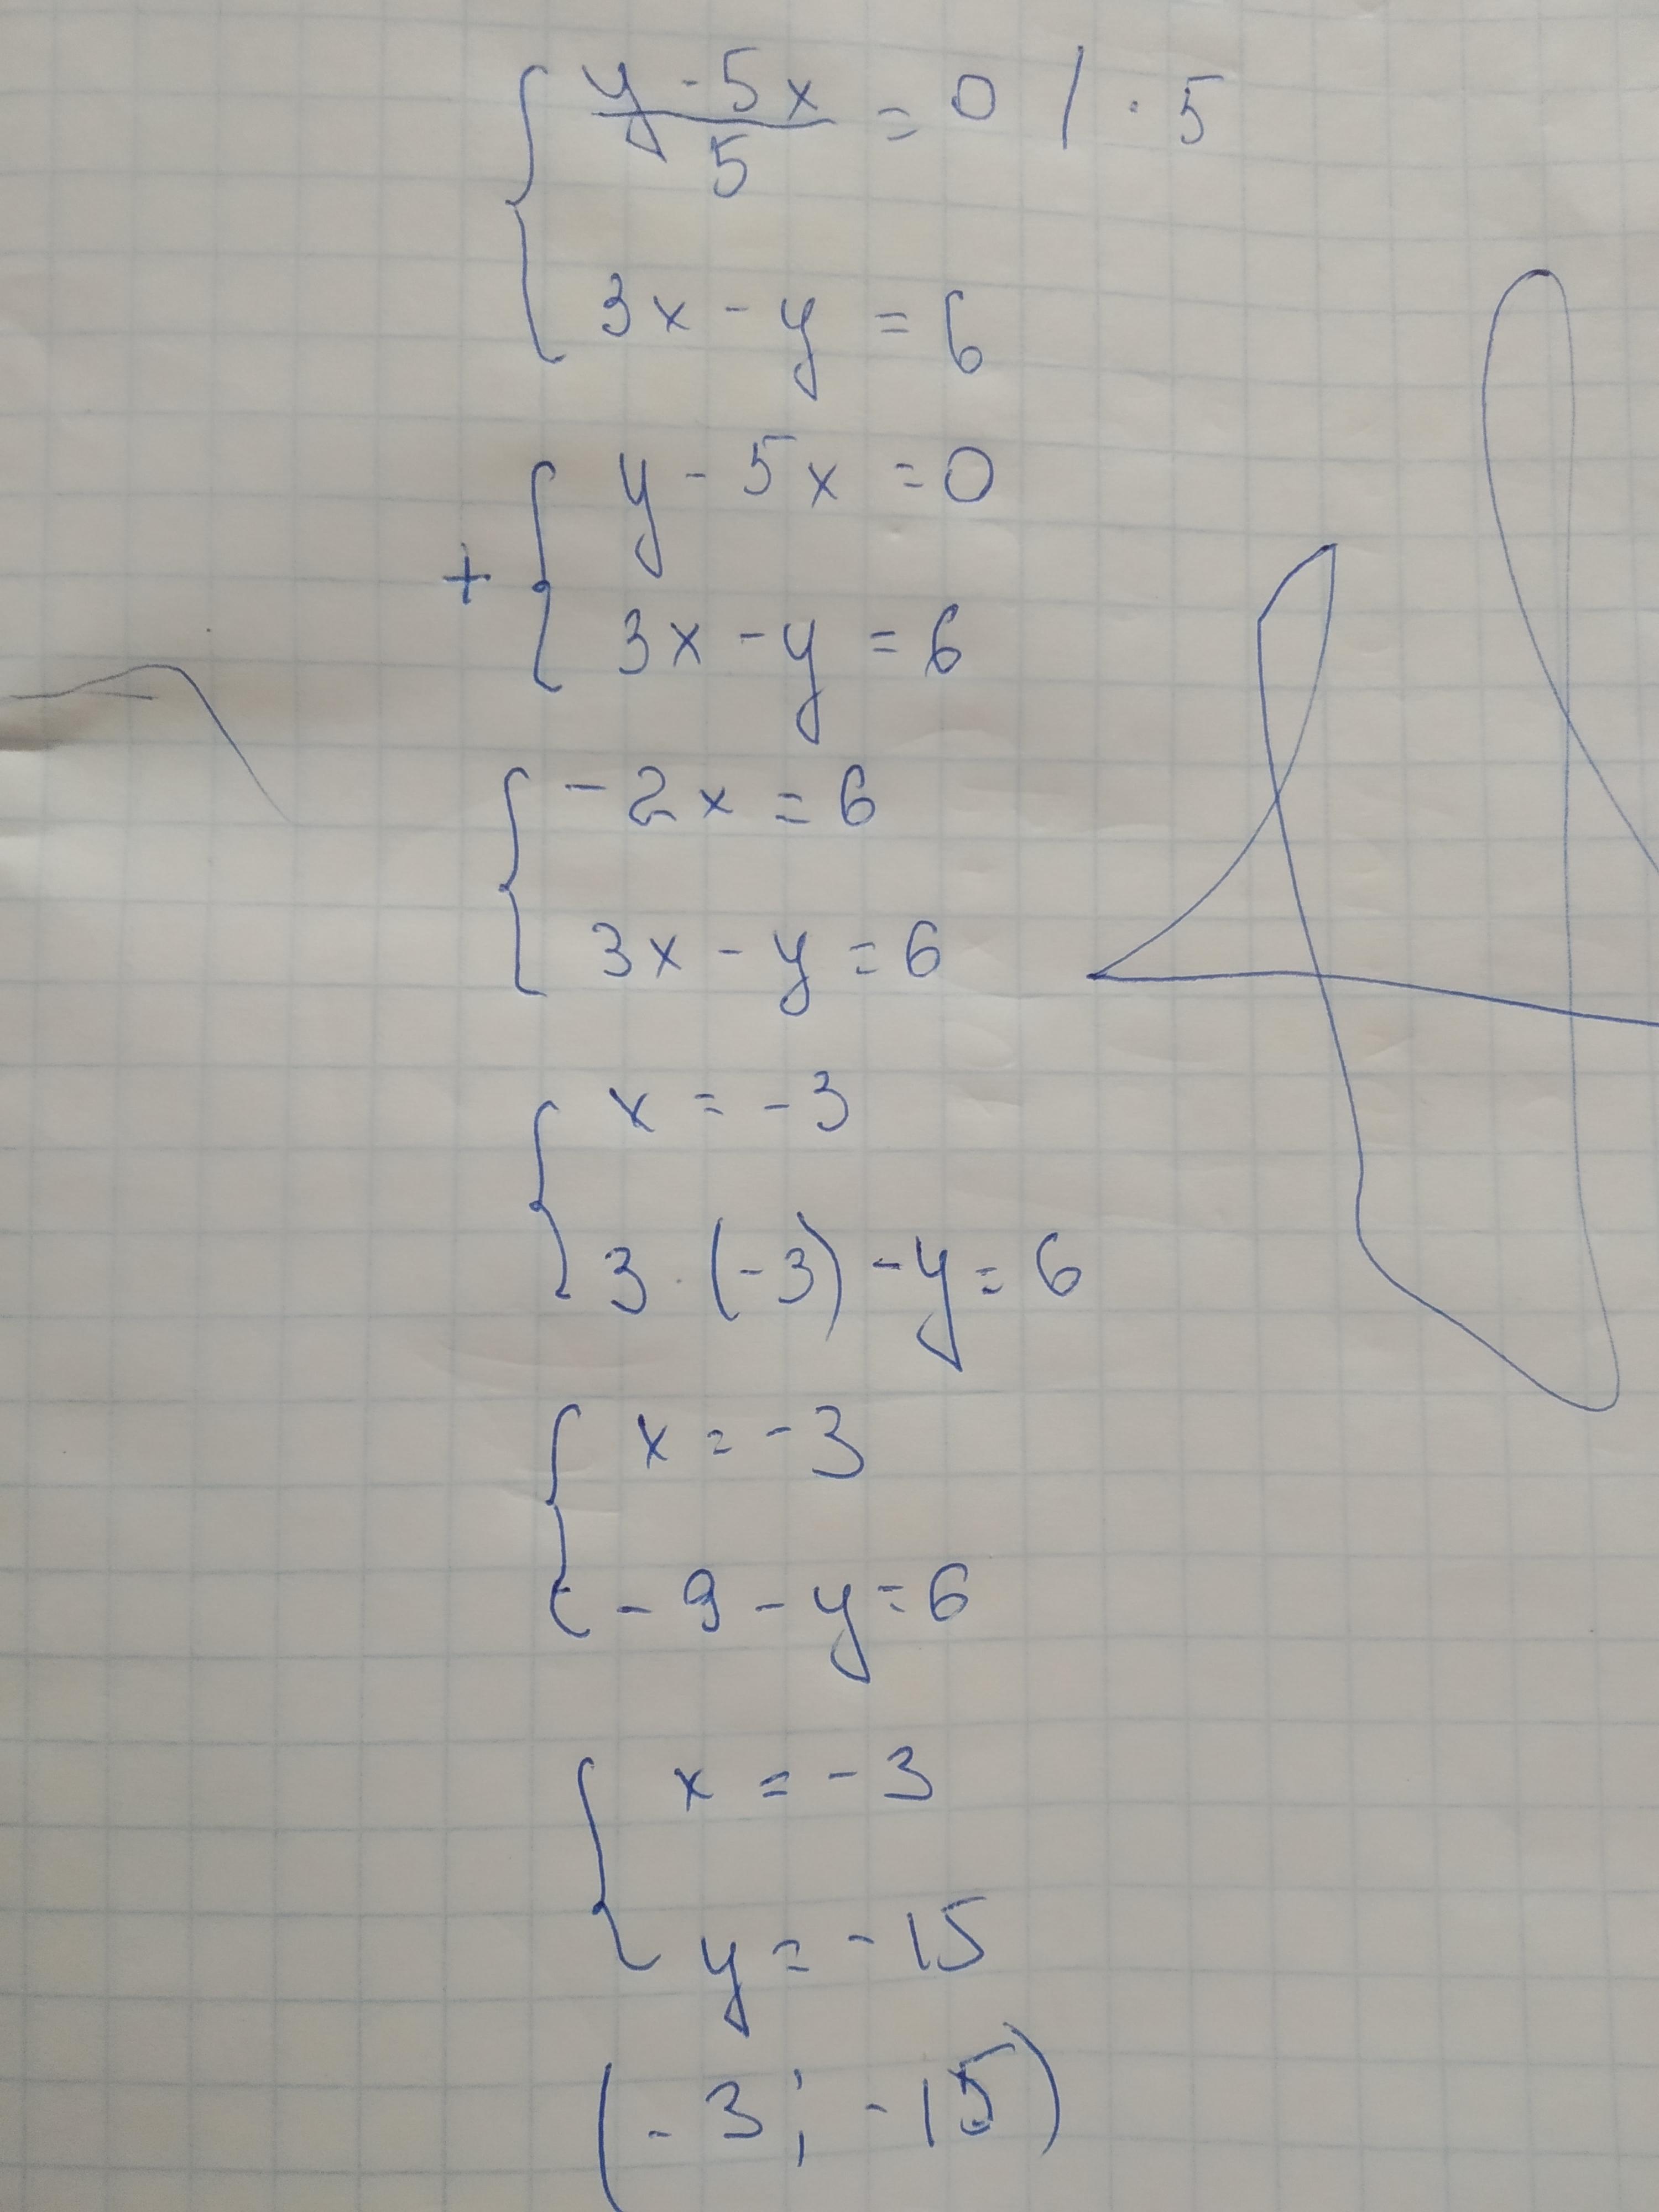 y - 5x
5
= 0 / · 5
3x - y = 6
y - 5x = 0
+
3x - y = 6
-2x = 6
3x - y = 6
x = -3
3 · (-3) - y = 6
x = -3
-9 - y = 6
x = -3
y = -15
(-3; -15)